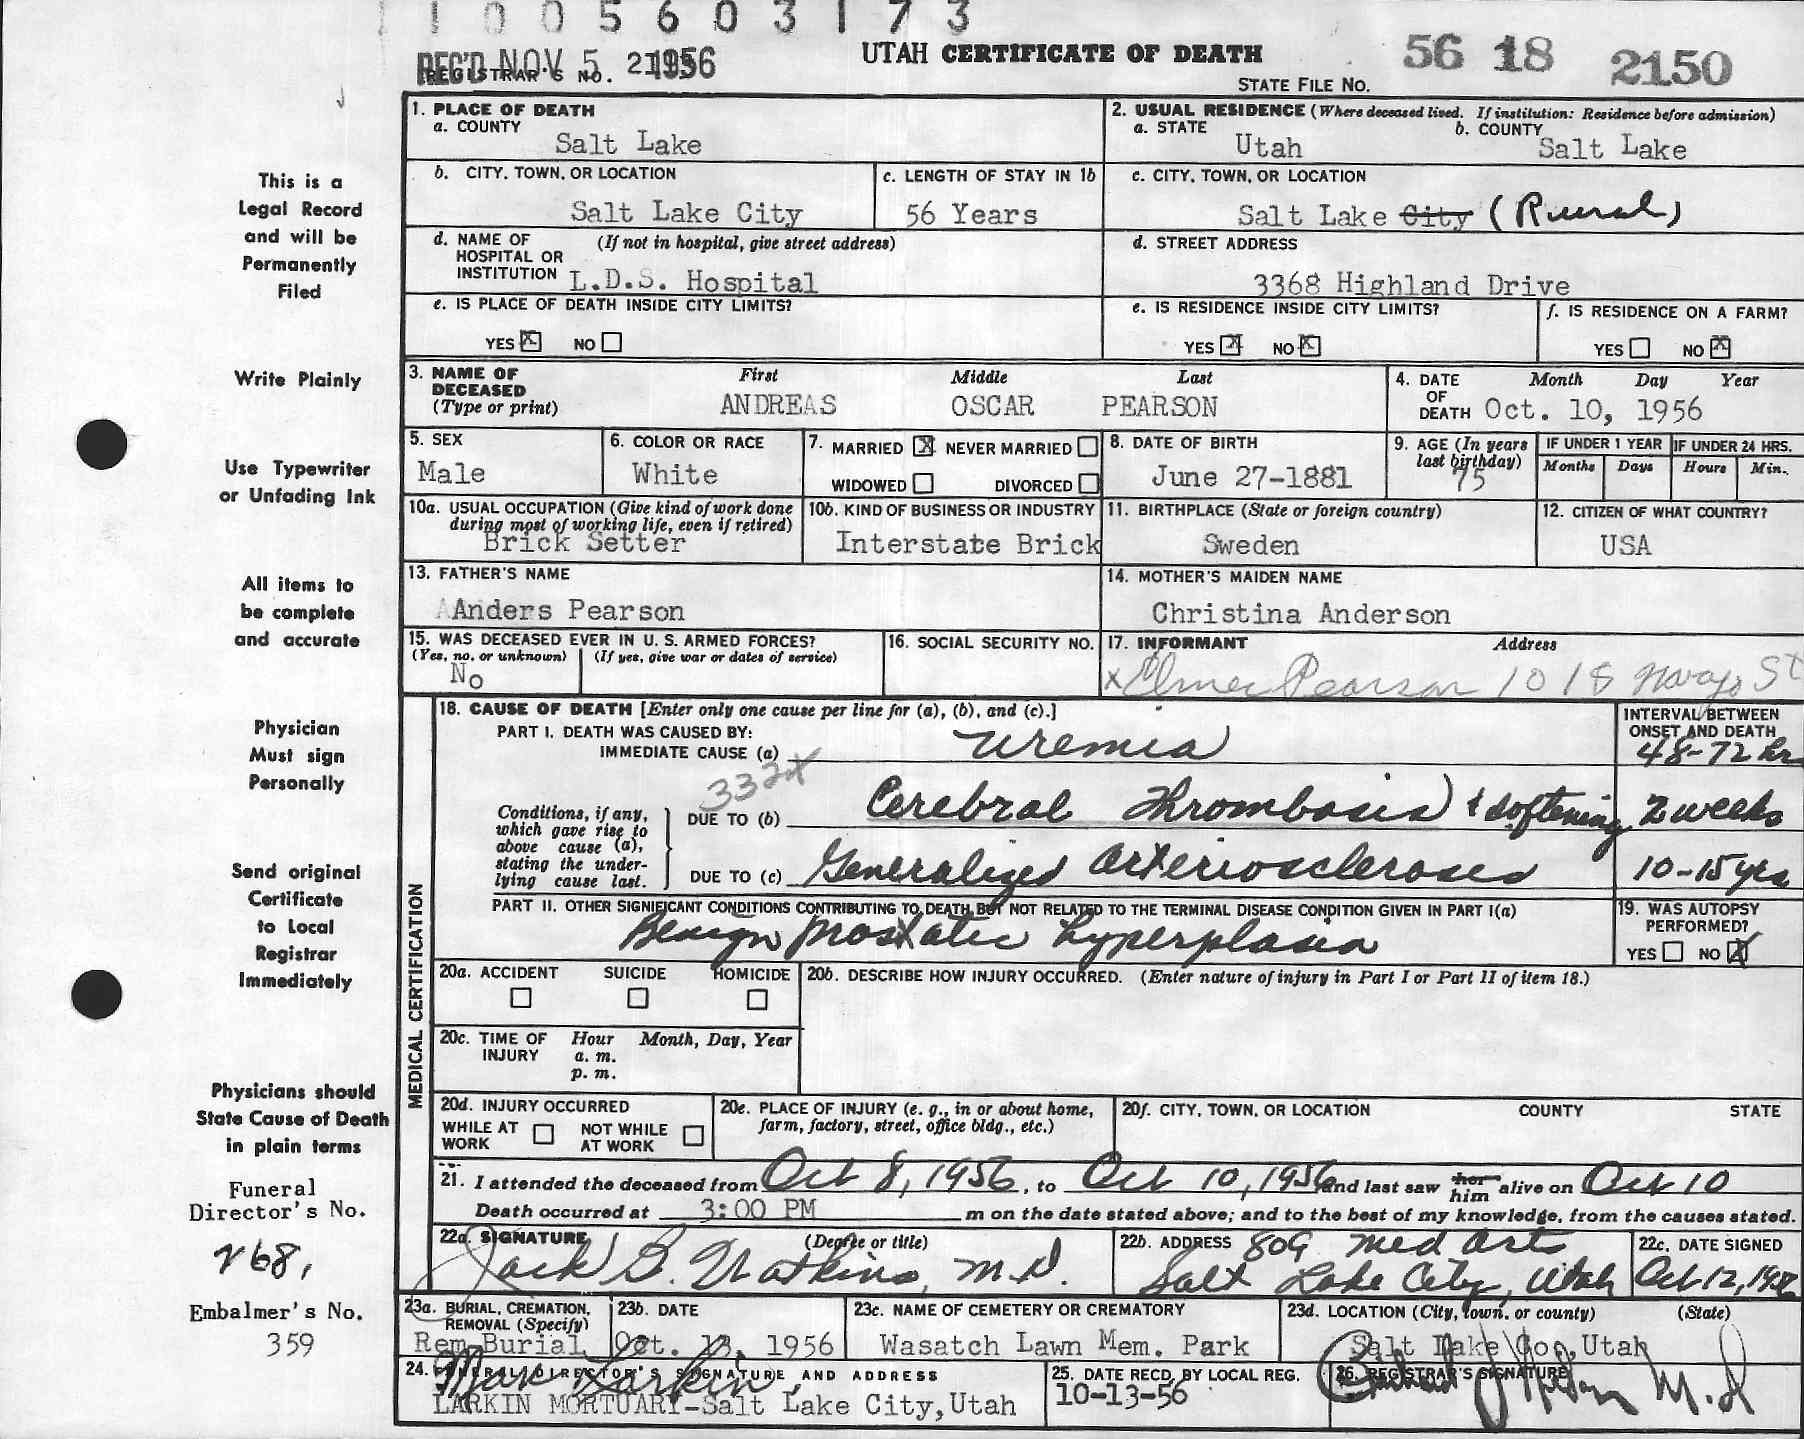 1 1 0 0 5 6 0 3 1 7 3
REC'D NOV 5 1956
REGISTRAR'S NO.
UTAH CERTIFICATE OF DEATH
STATE FILE NO. 56 18 2150
This is a
Legal Record
and will be
Permanently
Filed
Write Plainly
Use Typewriter
or Unfading Ink
All items to
be complete
and accurate
Physician
Must sign
Personally
Send original
Certificate
to Local
Registrar
Immediately
Physicians should
State Cause of Death
in plain terms
Funeral
Director's No.
268,
Embalmer's No.
359
1. PLACE OF DEATH
a. COUNTY
Salt Lake
2. USUAL RESIDENCE (Where deceased lived. If institution: Residence before admission)
a. STATE
Utah
b. COUNTY
Salt Lake
b. CITY, TOWN, OR LOCATION
Salt Lake City
c. LENGTH OF STAY IN 1b
56 Years
c. CITY, TOWN, OR LOCATION
Salt Lake City (Rural)
d. NAME OF HOSPITAL OR INSTITUTION (If not in hospital, give street address)
L.D.S. Hospital
d. STREET ADDRESS
3368 Highland Drive
e. IS PLACE OF DEATH INSIDE CITY LIMITS?
YES X NO
e. IS RESIDENCE INSIDE CITY LIMITS?
YES X NO X
f. IS RESIDENCE ON A FARM?
YES NO X
3. NAME OF DECEASED (Type or print)
First Middle Last
ANDREAS OSCAR PEARSON
4. DATE OF DEATH Month Day Year
Oct. 10, 1956
5. SEX
Male
6. COLOR OR RACE
White
7. MARRIED X NEVER MARRIED
WIDOWED DIVORCED
8. DATE OF BIRTH
June 27-1881
9. AGE (In years last birthday)
75
IF UNDER 1 YEAR
Months Days
IF UNDER 24 HRS.
Hours Min.
10a. USUAL OCCUPATION (Give kind of work done during most of working life, even if retired)
Brick Setter
10b. KIND OF BUSINESS OR INDUSTRY
Interstate Brick
11. BIRTHPLACE (State or foreign country)
Sweden
12. CITIZEN OF WHAT COUNTRY?
USA
13. FATHER'S NAME
Anders Pearson
14. MOTHER'S MAIDEN NAME
Christina Anderson
15. WAS DECEASED EVER IN U. S. ARMED FORCES?
(Yes, no, or unknown) (If yes, give war or dates of service)
No
16. SOCIAL SECURITY NO.
17. INFORMANT Address
x Elmer Pearson 1018 Navajo St
MEDICAL CERTIFICATION
18. CAUSE OF DEATH [Enter only one cause per line for (a), (b), and (c).]
PART I. DEATH WAS CAUSED BY:
IMMEDIATE CAUSE (a) Uremia
INTERVAL BETWEEN
ONSET AND DEATH
48-72 hr
332x
Conditions, if any, which gave rise to above cause (a), stating the underlying cause last.
DUE TO (b) Cerebral Thrombosis & softening 2 weeks
DUE TO (c) Generalized arteriosclerosis 10-15 yrs
PART II. OTHER SIGNIFICANT CONDITIONS CONTRIBUTING TO DEATH BUT NOT RELATED TO THE TERMINAL DISEASE CONDITION GIVEN IN PART I(a)
Benign prostatic hyperplasia
19. WAS AUTOPSY PERFORMED?
YES NO X
20a. ACCIDENT SUICIDE HOMICIDE
20b. DESCRIBE HOW INJURY OCCURRED. (Enter nature of injury in Part I or Part II of item 18.)
20c. TIME OF INJURY Hour Month, Day, Year
a. m.
p. m.
20d. INJURY OCCURRED
WHILE AT WORK NOT WHILE AT WORK
20e. PLACE OF INJURY (e. g., in or about home, farm, factory, street, office bldg., etc.)
20f. CITY, TOWN, OR LOCATION COUNTY STATE
21. I attended the deceased from Oct 8, 1956, to Oct 10, 1956 and last saw her him alive on Oct 10
Death occurred at 3:00 PM m on the date stated above; and to the best of my knowledge, from the causes stated.
22a. SIGNATURE (Degree or title)
Jack B. Watkins, M.D.
22b. ADDRESS 809 Med Arts
Salt Lake City, Utah
22c. DATE SIGNED
Oct 12, 1956
23a. BURIAL, CREMATION, REMOVAL (Specify)
Rem Burial
23b. DATE
Oct. 13, 1956
23c. NAME OF CEMETERY OR CREMATORY
Wasatch Lawn Mem. Park
23d. LOCATION (City, town, or county) (State)
Salt Lake Co., Utah
24. FUNERAL DIRECTOR'S SIGNATURE AND ADDRESS
Larkin
LARKIN MORTUARY-Salt Lake City, Utah
25. DATE RECD. BY LOCAL REG.
10-13-56
26. REGISTRAR'S SIGNATURE
M.D